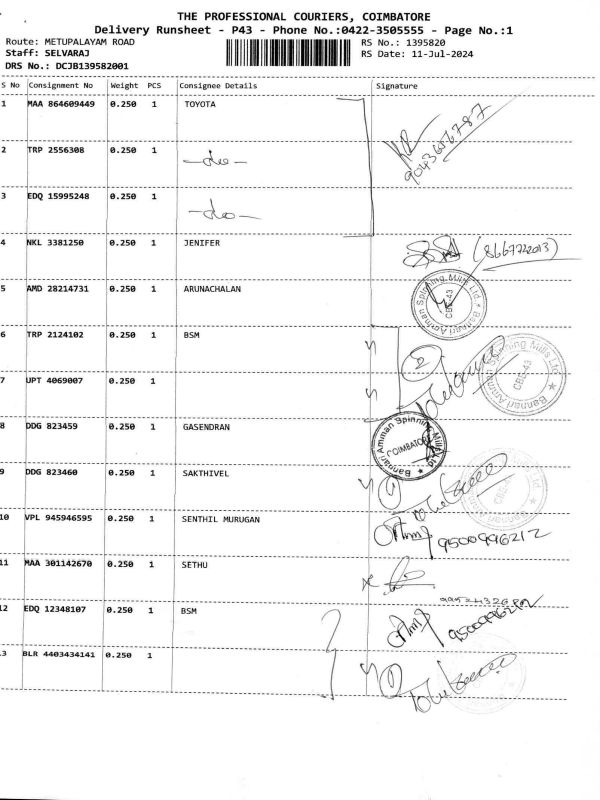 THE PROFESSIONAL COURIERS, COIMBATORE
Delivery Runsheet - P43 - Phone No.:0422-3505555 - Page No.:1
Route: METUPALAYAM ROAD
Staff: SELVARAJ
DRS No.: DCJB139582001
RS No.: 1395820
RS Date: 11-Jul-2024
S No Consignment No Weight PCS Consignee Details Signature
1 MAA 864609449 0.250 1 TOYOTA
2 TRP 2556308 0.250 1 -do-
3 EDQ 15995248 0.250 1 -do-
4 NKL 3381250 0.250 1 JENIFER
5 AMD 28214731 0.250 1 ARUNACHALAN
Bannari Amman Spinning Mills Ltd
CBE-43
6 TRP 2124102 0.250 1 BSM
Bannari Amman Spinning Mills Ltd
CBE-43
7 UPT 4069007 0.250 1
8 DDG 823459 0.250 1 GASENDRAN
Bannari Amman Spinning Mills Ltd
COIMBATORE
9 DDG 823460 0.250 1 SAKTHIVEL
10 VPL 945946595 0.250 1 SENTHIL MURUGAN 9500996212
11 MAA 301142670 0.250 1 SETHU
12 EDQ 12348107 0.250 1 BSM
13 BLR 4403434141 0.250 1